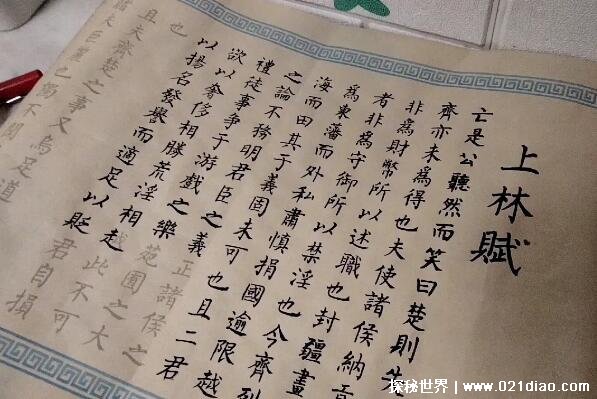 上林賦
亡是公聽然而笑曰楚則失
齊亦未為得也夫使諸侯納貢
非為財幣所以述職也封疆畫
者非為守御所以禁淫也今齊列
為東藩而外私肅慎捐國逾限越
海而田其于義固未可也且二君
之論不務明君臣之義正諸侯之
禮徒事爭于游戲之樂苑囿之大
欲以奢侈相勝荒淫相越此不可
以揚名發譽而適足以貶君自損
也且夫齊楚之事又烏足道
夫巨麗也獨不聞
探秘世界 @ www.021diao.com